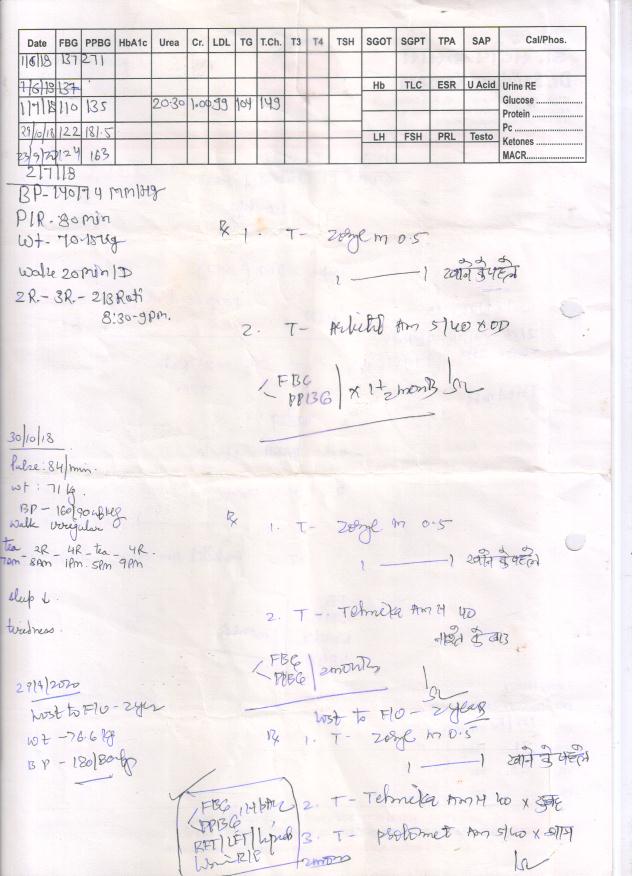 Date FBG PPBG HbA1c Urea Cr. LDL TG T.Ch. T3 T4 TSH SGOT SGPT TPA SAP Cal/Phos.
1/6/18 137 271
7/6/18 137
Hb TLC ESR U Acid Urine RE
1/7/18 110 135 20.30 1.00 99 104 149
Glucose ..................
Protein ..................
29/10/18 122 181.5
LH FSH PRL Testo Pc ..................
Ketones ..................
23/9/20 124 163
MACR..................
2/7/18
BP - 140/74 mm/Hg
P/R - 80 min
Wt - 70.15 kg
℞ 1. T - zoryl m 0.5
Walk 20 min/D
1 ——— 1 खाने के पहले
2R. - 3R - 2/3 Roti
8:30-9pm.
2. T - Am 5/40 x OD
FBG
PPBG x 1+2 month
30/10/18
Pulse: 84/min.
wt: 71 kg.
BP - 160/90 mmHg
walk irregular
℞ 1. T - zoryl m 0.5
tea - 2R - 4R - tea - 4R.
7am 8am 1pm. 5pm 9pm
1 ——— 1 खाने के पहले
sleep ↓
tiredness.
2. T - Telmika Am H 40
नाश्ते के बाद
FBG
PPBG 2 months
29/9/2020
Lost to F/O - 2 year
wt - 76.6 kg
BP - 180/80
Lost to F/O - 2 years
℞ 1. T - zoryl m 0.5
1 ——— 1 खाने के पहले
FBG
PPBG
RFT/LFT/Lipid
Urine R/E
2. T - Telmika Am H 40 x सुबह
3. T - Am 5/40 x शाम
2 months